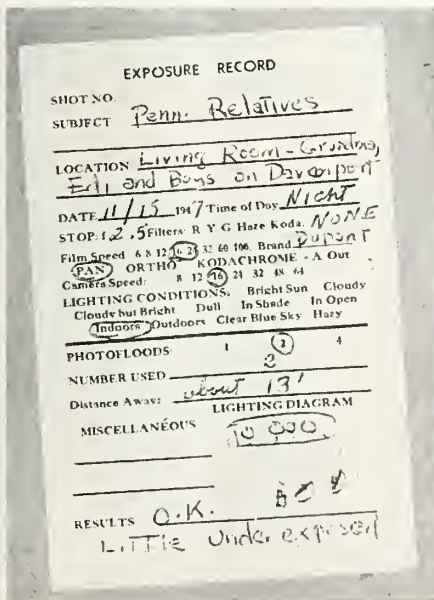 EXPOSURE RECORD
SHOT NO.
SUBJECT Penn. Relatives
LOCATION Living Room - Grandma,
and Boys on Davenport
DATE 11/15 1947 Time of Day Night
STOP: f.2.5 Filters: R Y G Haze Koda. NONE
Film Speed 6 8 12 16 24 32 60 100. Brand Dupont
PAN ORTHO KODACHROME - A Out
Camera Speed: 8 12 16 24 32 48 64
LIGHTING CONDITIONS: Bright Sun Cloudy
Cloudy but Bright Dull In Shade In Open
Indoors Outdoors Clear Blue Sky Hazy
PHOTOFLOODS: 1 2 4
NUMBER USED 2
Distance Away: about 13'
LIGHTING DIAGRAM
MISCELLANEOUS
RESULTS O.K.
LITTLE Under exposed